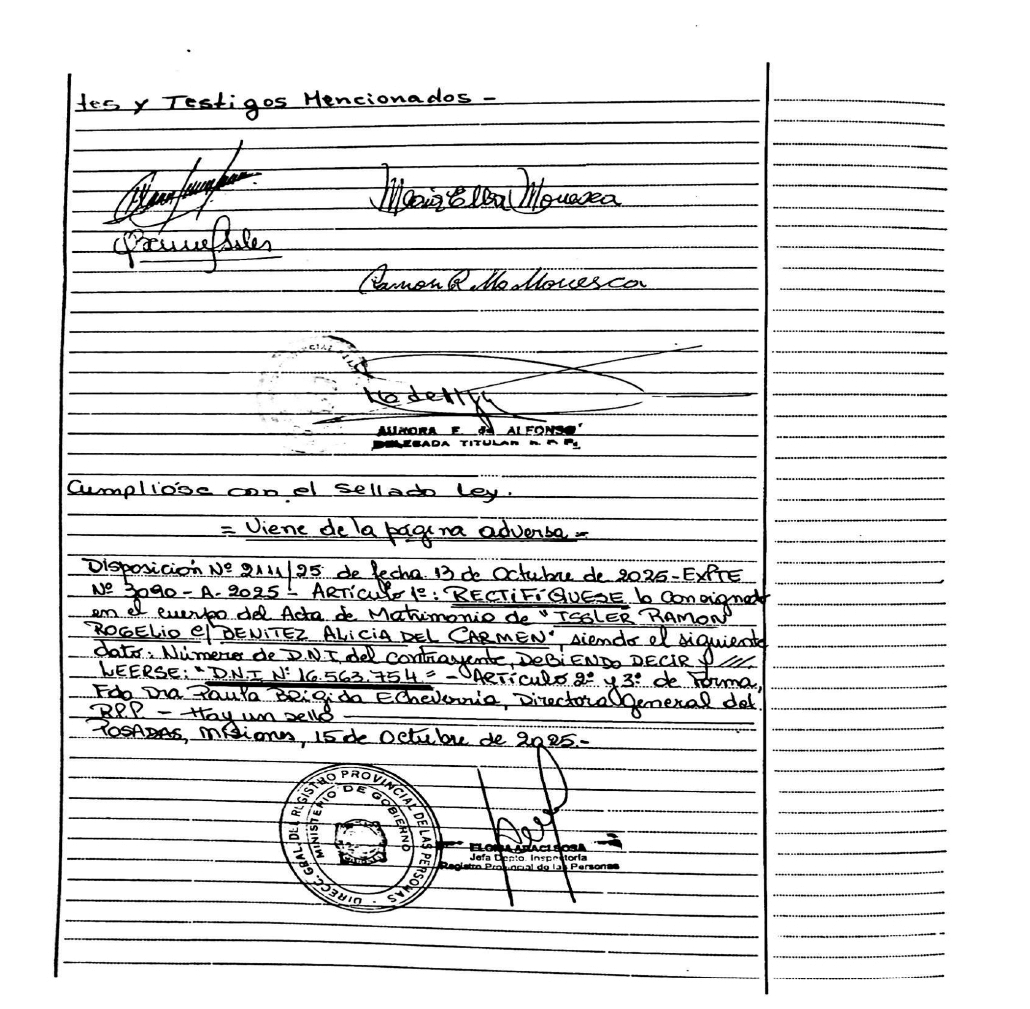 tes y Testigos Mencionados -
Maria Elba
Ramon R.
AURORA F. de ALFONSO
DELEGADA TITULAR R. P. P.
Cumplióse con el sellado Ley.
= Viene de la página adversa =
Disposición Nº 2111/25 de fecha 13 de Octubre de 2025 - EXPTE
Nº 3090 - A - 2025 - ARTÍCULO 1º: RECTIFÍQUESE lo consignado
en el cuerpo del Acta de Matrimonio de "ISSLER RAMON
ROGELIO C/ BENITEZ ALICIA DEL CARMEN", siendo el siguiente
dato: Número de D.N.I. del contrayente, DEBIENDO DECIR y ///.
LEERSE: "D.N.I Nº 16.563.754 = - ARTÍCULO 2º y 3º de Forma,
Fdo Dra Paula Brigida Echeverria, Directora General del
R.P.P. - Hay un sello
POSADAS, Misiones, 15 de Octubre de 2025.-
DIRECC. GRAL. DEL REGISTRO PROVINCIAL DE LAS PERSONAS
MINISTERIO DE GOBIERNO
Jefa Depto. Inspectoría
Registro Provincial de las Personas